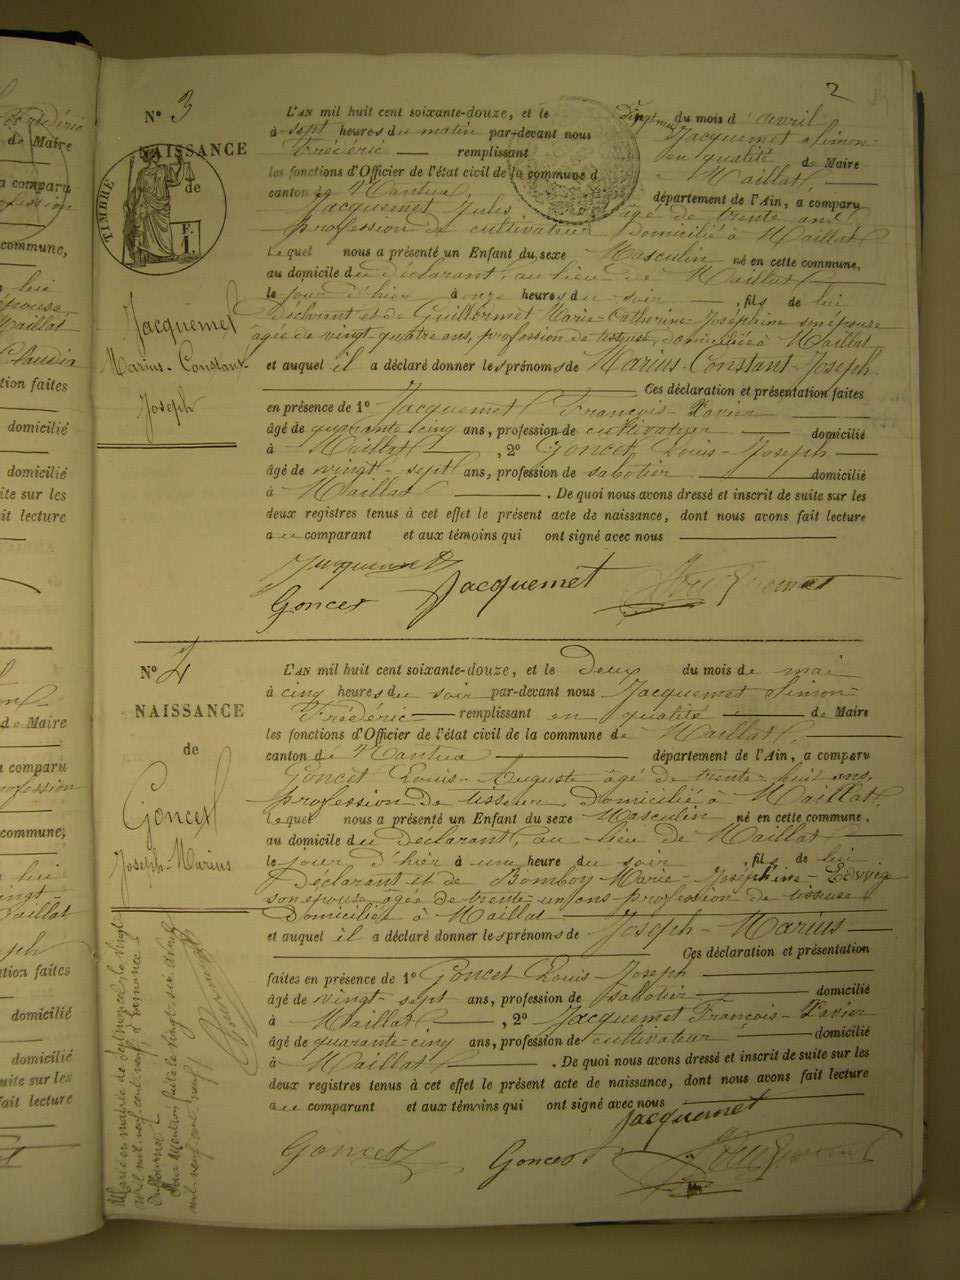 2
N° 3
NAISSANCE
de
TIMBRE
F.
1.
Jacquemet
Marius-Constant
Joseph
L'AN mil huit cent soixante-douze, et le vingt neuf du mois d'avril
à sept heures du matin par-devant nous Jacquemet Simon-
Frédéric remplissant en qualité de Maire
les fonctions d'Officier de l'état civil de la commune d Maillat
canton de Nantua département de l'Ain, a comparu
Jacquemet Jules âgé de trente ans
profession de cultivateur domicilié à Maillat
Lequel nous a présenté un Enfant du sexe Masculin né en cette commune,
au domicile du déclarant, au lieu de Maillat
le jour d'hier à onze heures du soir, fils de lui
déclarant et de Guillermet Marie-Catherine-Joséphine son épouse
âgée de vingt-quatre ans, profession de tisseuse, domiciliée à Maillat
et auquel il a déclaré donner les prénoms de Marius-Constant-Joseph
Ces déclaration et présentation faites
en présence de 1° Jacquemet François-Xavier
âgé de quarante cinq ans, profession de cultivateur domicilié
à Maillat, 2° Goncet Louis-Joseph
âgé de vingt-sept ans, profession de sabotier domicilié
à Maillat. De quoi nous avons dressé et inscrit de suite sur les
deux registres tenus à cet effet le présent acte de naissance, dont nous avons fait lecture
au comparant et aux témoins qui ont signé avec nous
Jacquemet
Goncet Jacquemet
N° 4
NAISSANCE
de
Goncet
Joseph-Marius
L'AN mil huit cent soixante-douze, et le Deux du mois de mai
à cinq heures du soir par-devant nous Jacquemet Simon-
Frédéric remplissant en qualité de Maire
les fonctions d'Officier de l'état civil de la commune de Maillat
canton de Nantua département de l'Ain, a comparu
Goncet Louis-Auguste âgé de trente-huit ans,
profession de tisseur, domicilié à Maillat
Lequel nous a présenté un Enfant du sexe Masculin né en cette commune,
au domicile du Déclarant, au lieu de Maillat
le jour d'hier à une heure du soir, fils de lui
Déclarant et de Bomboy Marie-Joséphine-Edwig
son épouse agée de trente-un ans profession de tisseuse
Domiciliée à Maillat
et auquel il a déclaré donner les prénoms de Joseph-Marius
Ces déclaration et présentation
faites en présence de 1° Goncet Louis-Joseph
âgé de vingt-sept ans, profession de sabotier domicilié
à Maillat, 2° Jacquemet François-Xavier
âgé de quarante-cinq ans, profession de cultivateur domicilié
à Maillat. De quoi nous avons dressé et inscrit de suite sur les
deux registres tenus à cet effet le présent acte de naissance, dont nous avons fait lecture
au comparant et aux témoins qui ont signé avec nous
Jacquemet
Goncet Goncet